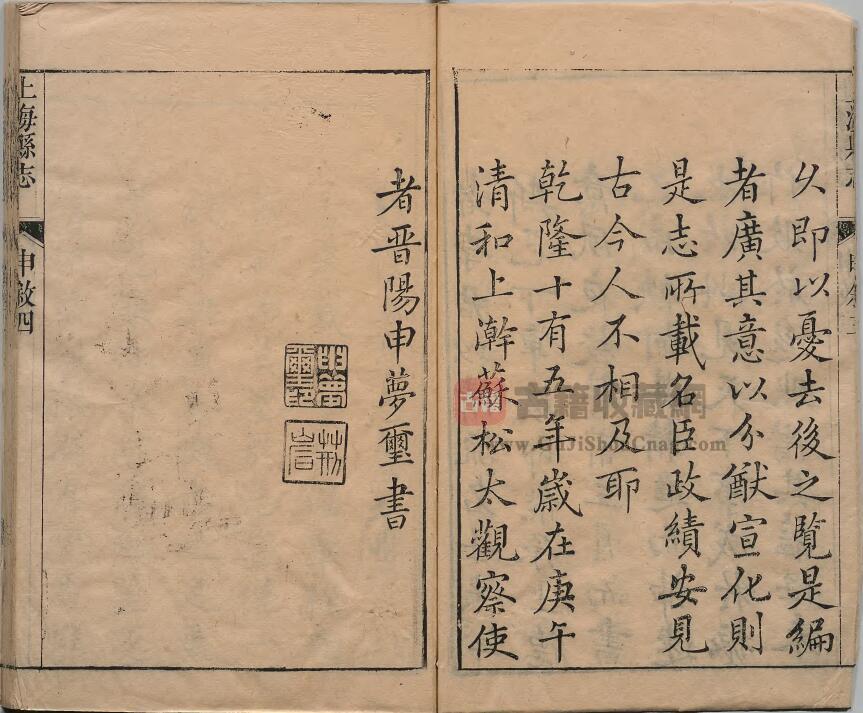 乆即以憂去後之覽是編
者廣其意以分猷宣化則
是志所載名臣政績安見
古今人不相及耶
乾隆十有五年歲在庚午
清和上澣蘇松太觀察使
者晋陽申夢璽書
申夢璽印
上海縣志 申敘四
古籍收藏網
www.GuJiShouCang.com